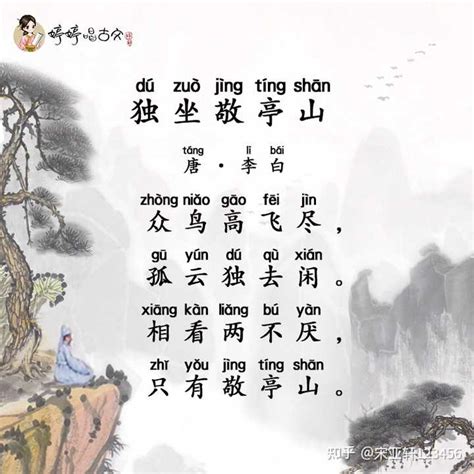 婷婷唱古文
dú zuò jìng tíng shān
独坐敬亭山
táng lǐ bái
唐·李白
zhòng niǎo gāo fēi jìn
众鸟高飞尽，
gū yún dú qù xián
孤云独去闲。
xiāng kàn liǎng bú yàn
相看两不厌，
zhī yǒu jìng tíng shān
只有敬亭山。
知乎 @宋亚轩123456